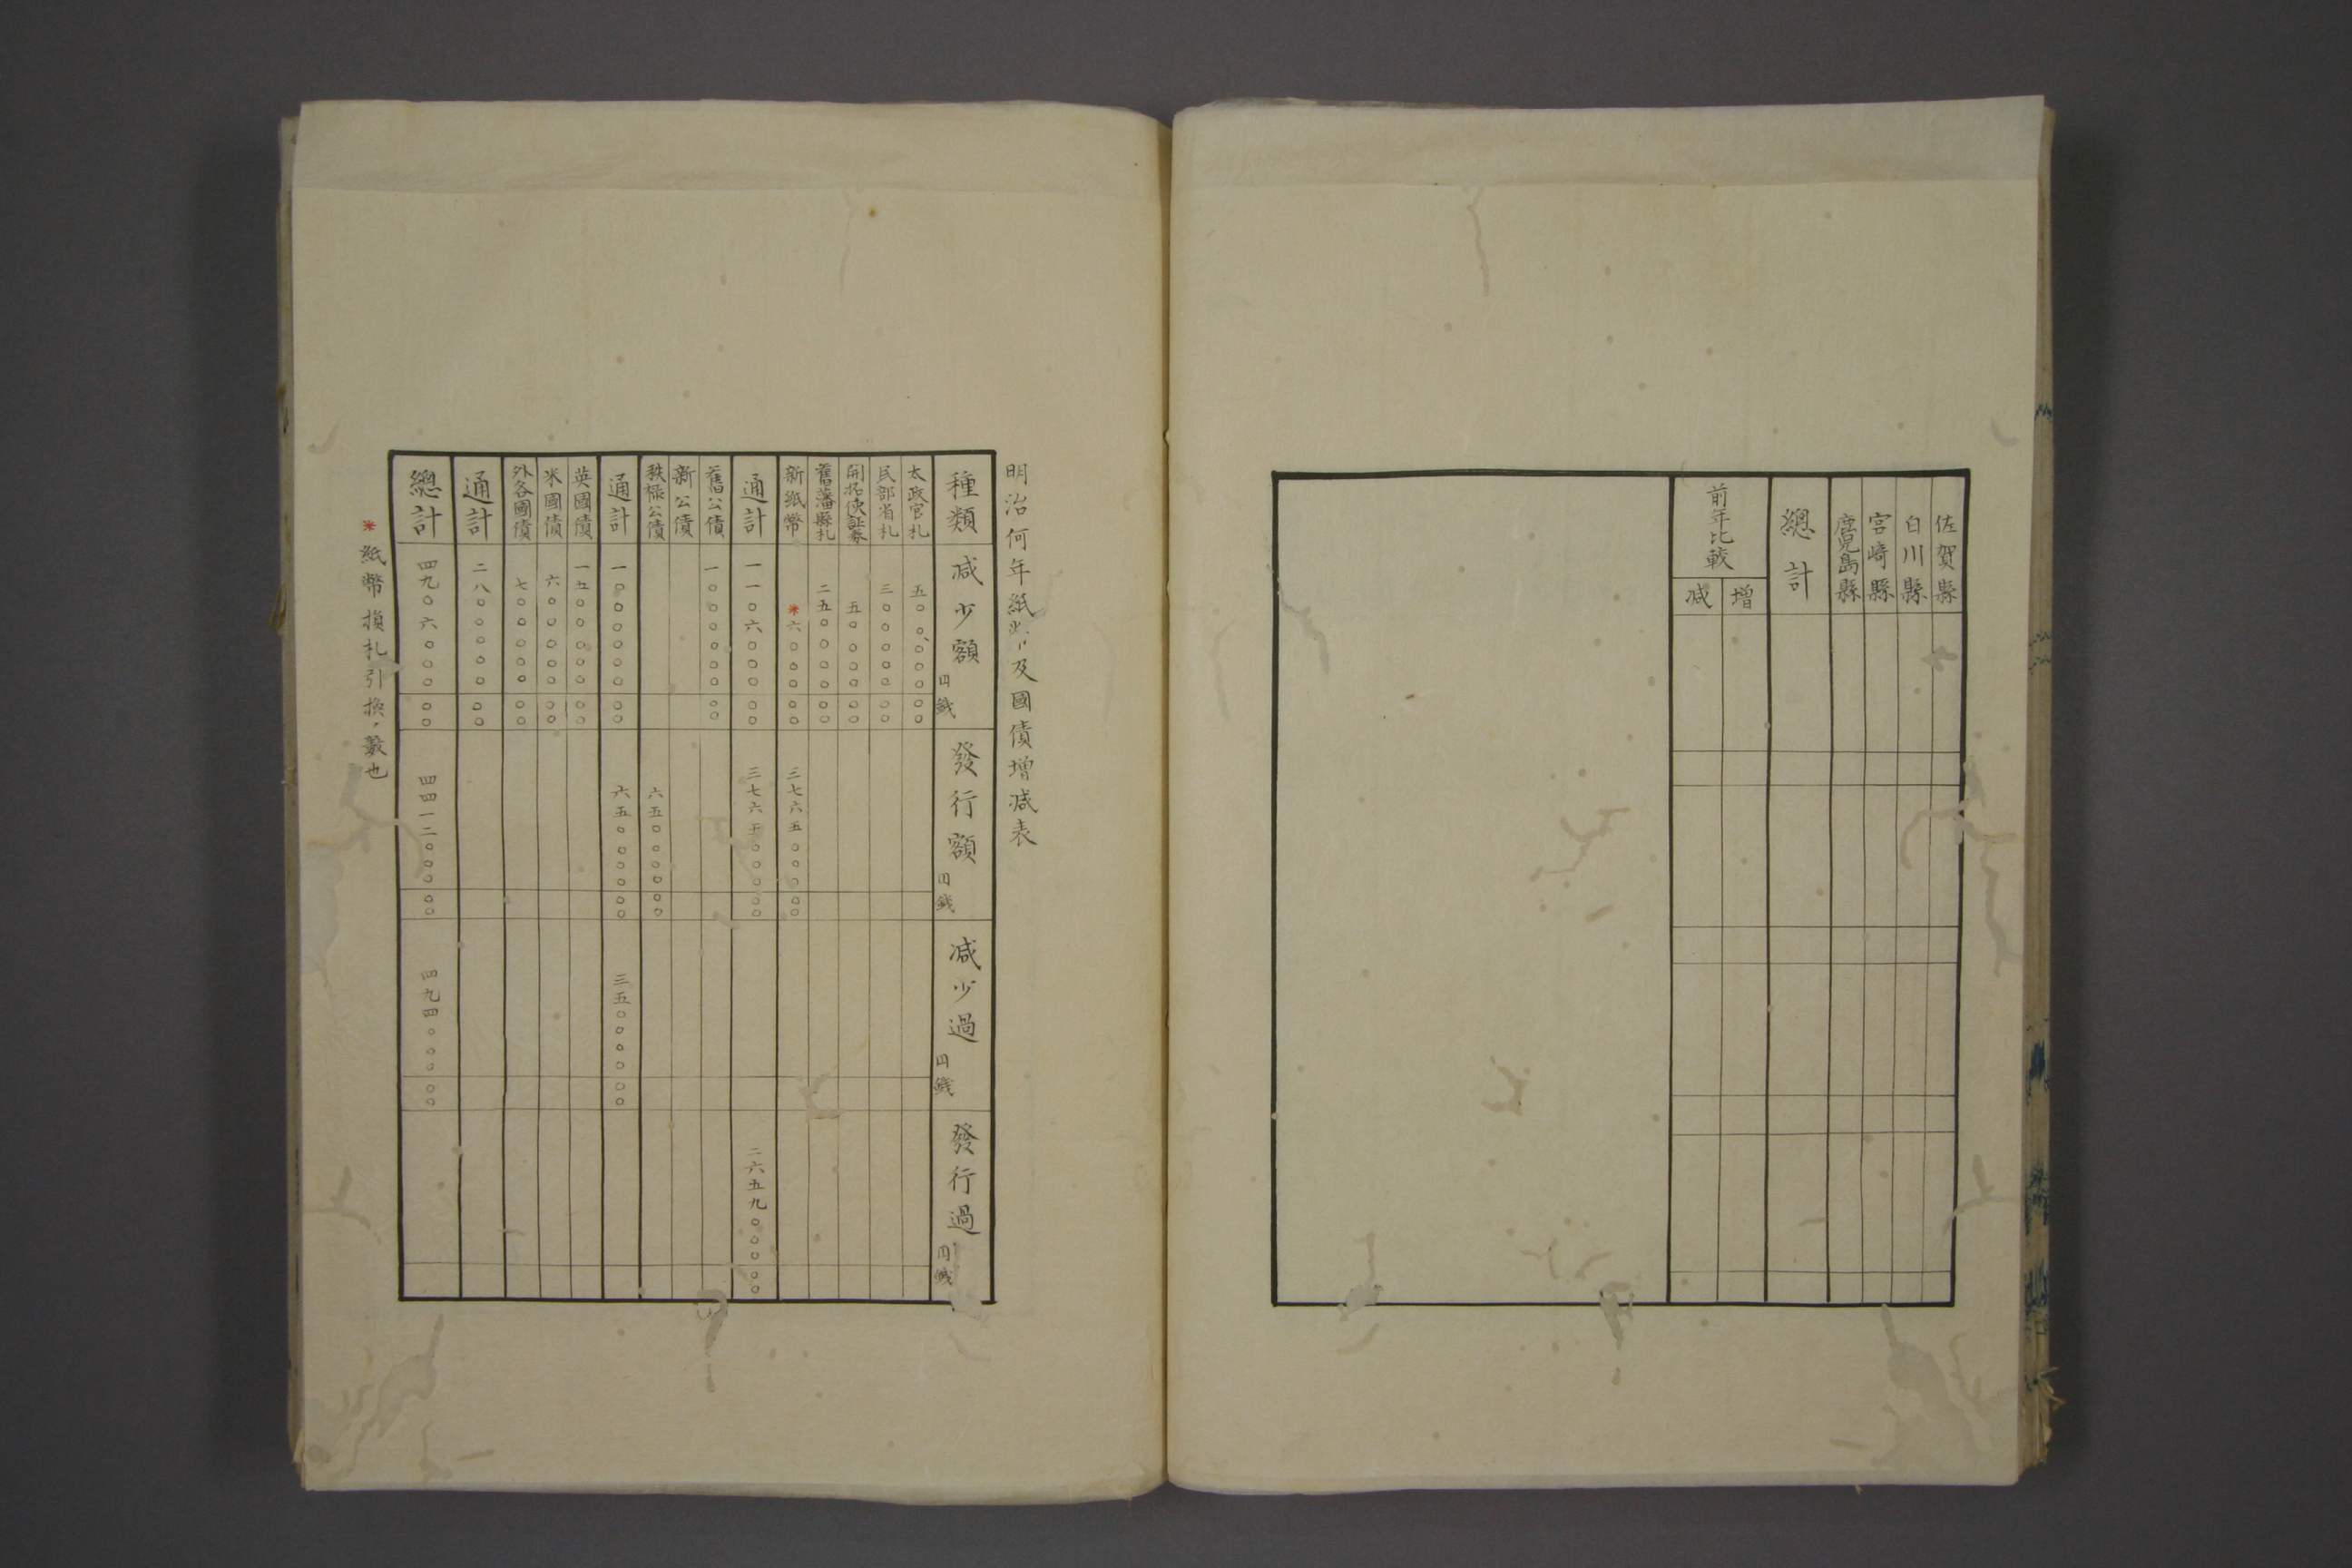 佐賀縣
白川縣
宮崎縣
鹿児島縣
總計
前年比較
增
减
明治何年紙幣及國債增减表
種類 减少額 円 錢 發行額 円 錢 减少過 円 錢 發行過 円 錢
太政官札 五〇〇、〇〇〇 〇〇
民部省札 三〇〇〇〇〇 〇〇
開拓使証券 五〇〇〇〇 〇〇
舊藩縣札 二五〇〇〇〇 〇〇
新紙幣 ※六〇〇〇 〇〇 三七六五〇〇〇 〇〇
通計 一一〇六〇〇〇 〇〇 三七六五〇〇〇 〇〇 二六五九〇〇〇 〇〇
舊公債 一〇〇〇〇〇〇 〇〇
新公債
秩祿公債 六五〇〇〇〇 〇〇
通計 一〇〇〇〇〇〇 〇〇 六五〇〇〇〇 〇〇 三五〇〇〇〇 〇〇
英國債 一五〇〇〇〇〇 〇〇
米國債 六〇〇〇〇〇 〇〇
外各國債 七〇〇〇〇〇 〇〇
通計 二八〇〇〇〇〇 〇〇
總計 四九〇六〇〇〇 〇〇 四四一二〇〇〇 〇〇 四九四〇〇〇 〇〇
※紙幣損札引換ノ數也